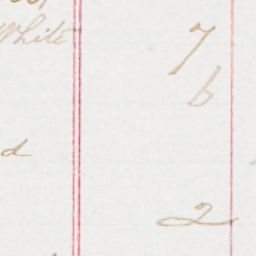 White 7
6
d
2